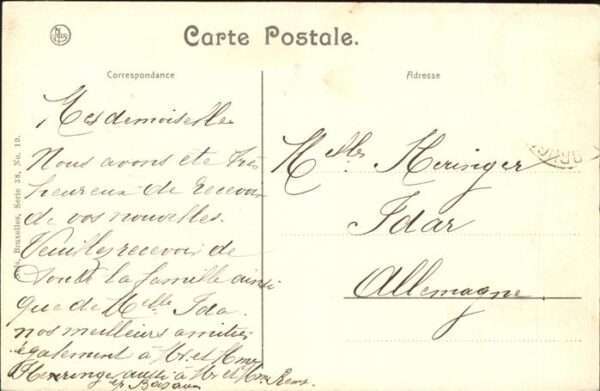 Carte Postale.
Correspondance
Adresse
Nels, Bruxelles, Serie 38, No. 19.
Mesdemoiselles
Nous avons été très
heureux de recevoir
de vos nouvelles.
Veuillez recevoir de
toute la famille ainsi
que de Melle Ida
nos meilleurs amitiés
également à Mr. et Mme
Heringer aussi à Mr et Mme
Melles Heringer
Idar
Allemagne.